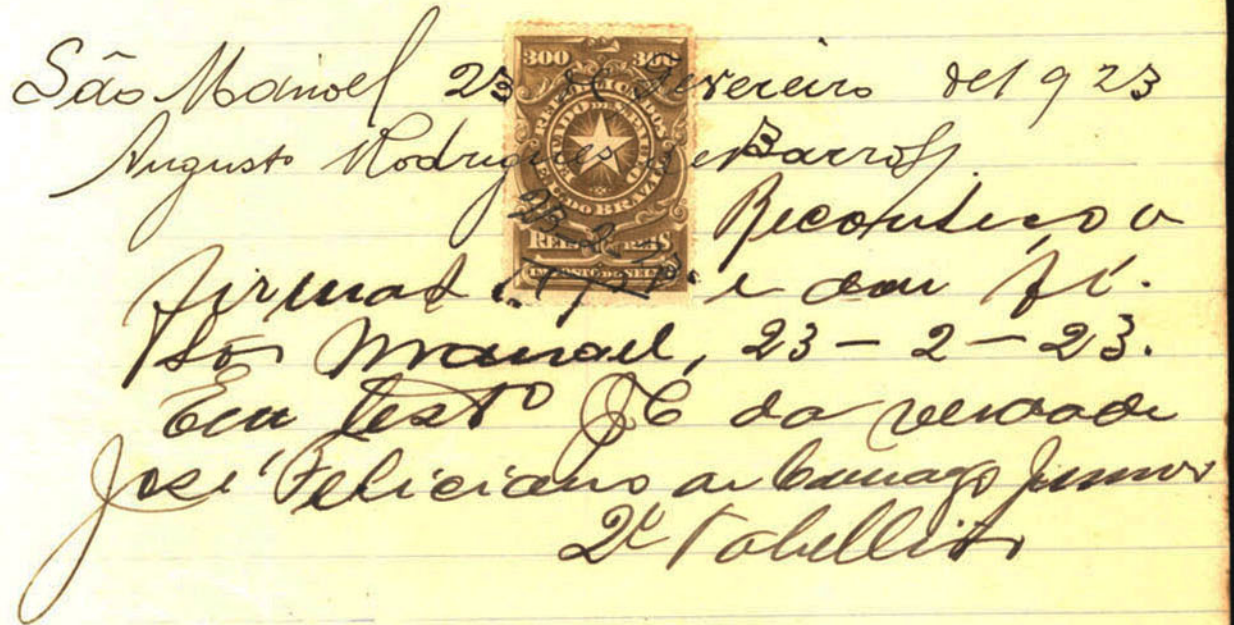 São Manoel 23 de Fevereiro de 1923
Augusto Rodrigues de Barros
300 300
REPUBLICA DOS
ESTADO DE S. PAULO
E. U. DO BRAZIL
REIS REIS
IMPOSTO DO SELLO
23-2-
Reconheço a
firma e dou fé.
São Manoel, 23 - 2 - 23.
Em testº JC da verdade
José Feliciano de Camargo Junior
2º Tabellião